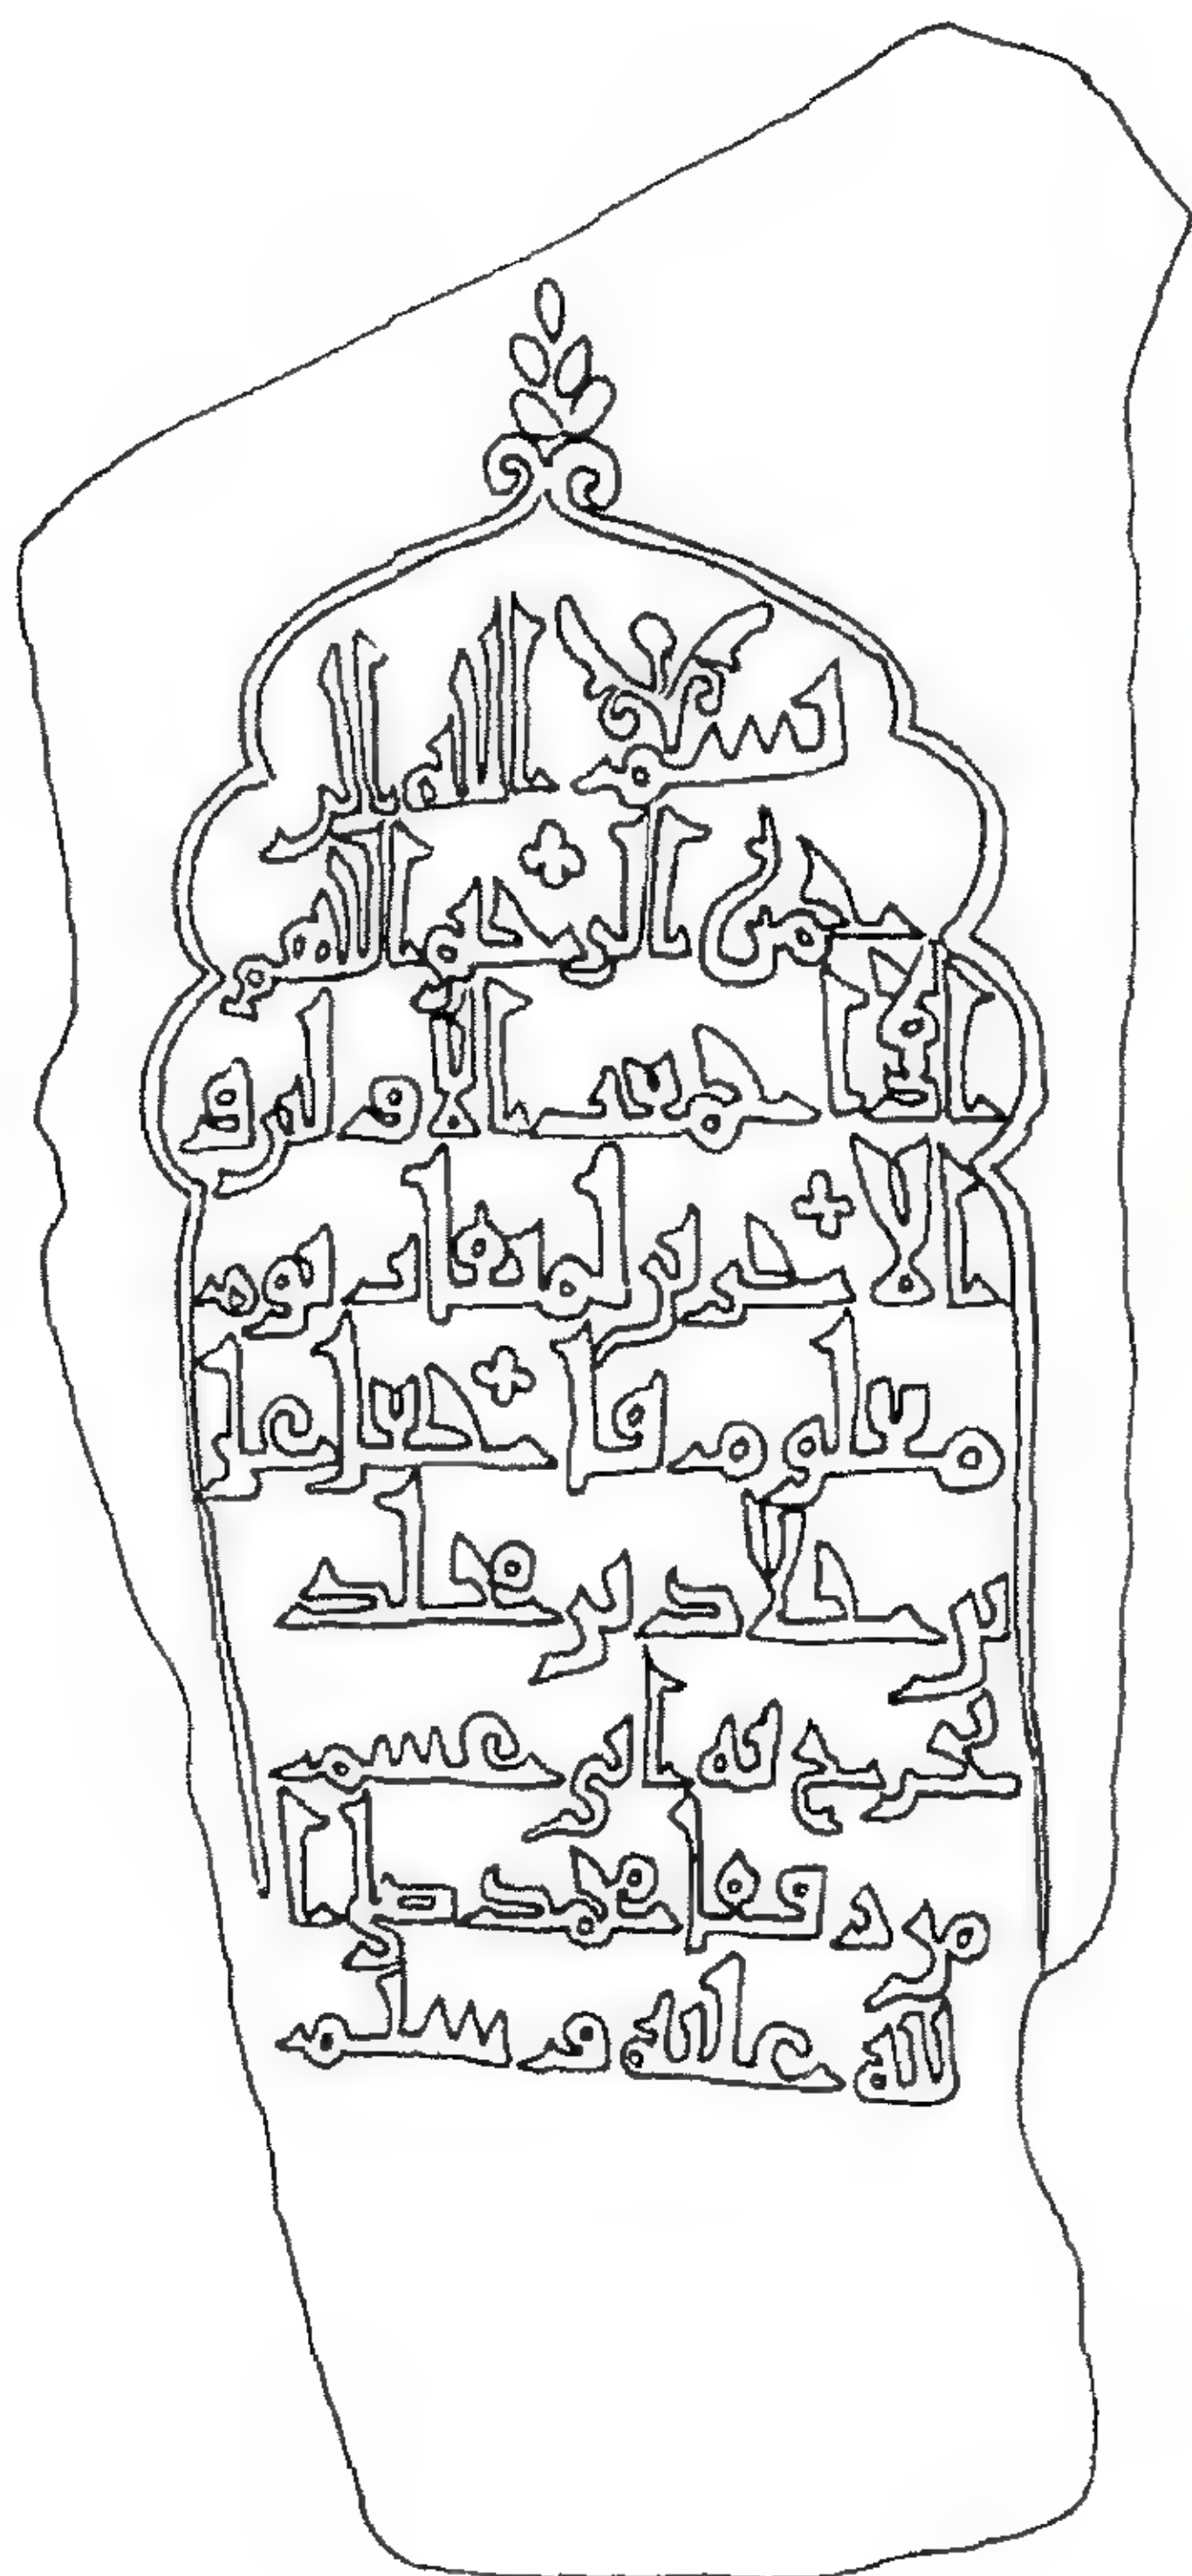 بسم الله الر
حمن الرحيم اللهم
اذا جمعت الاولين و
الاخرين لميقات يوم
معلوم فاجعل
بن خلاد بن مخلد
بن جريج
من رفقا محمد صلى ا
لله عليه وسلم